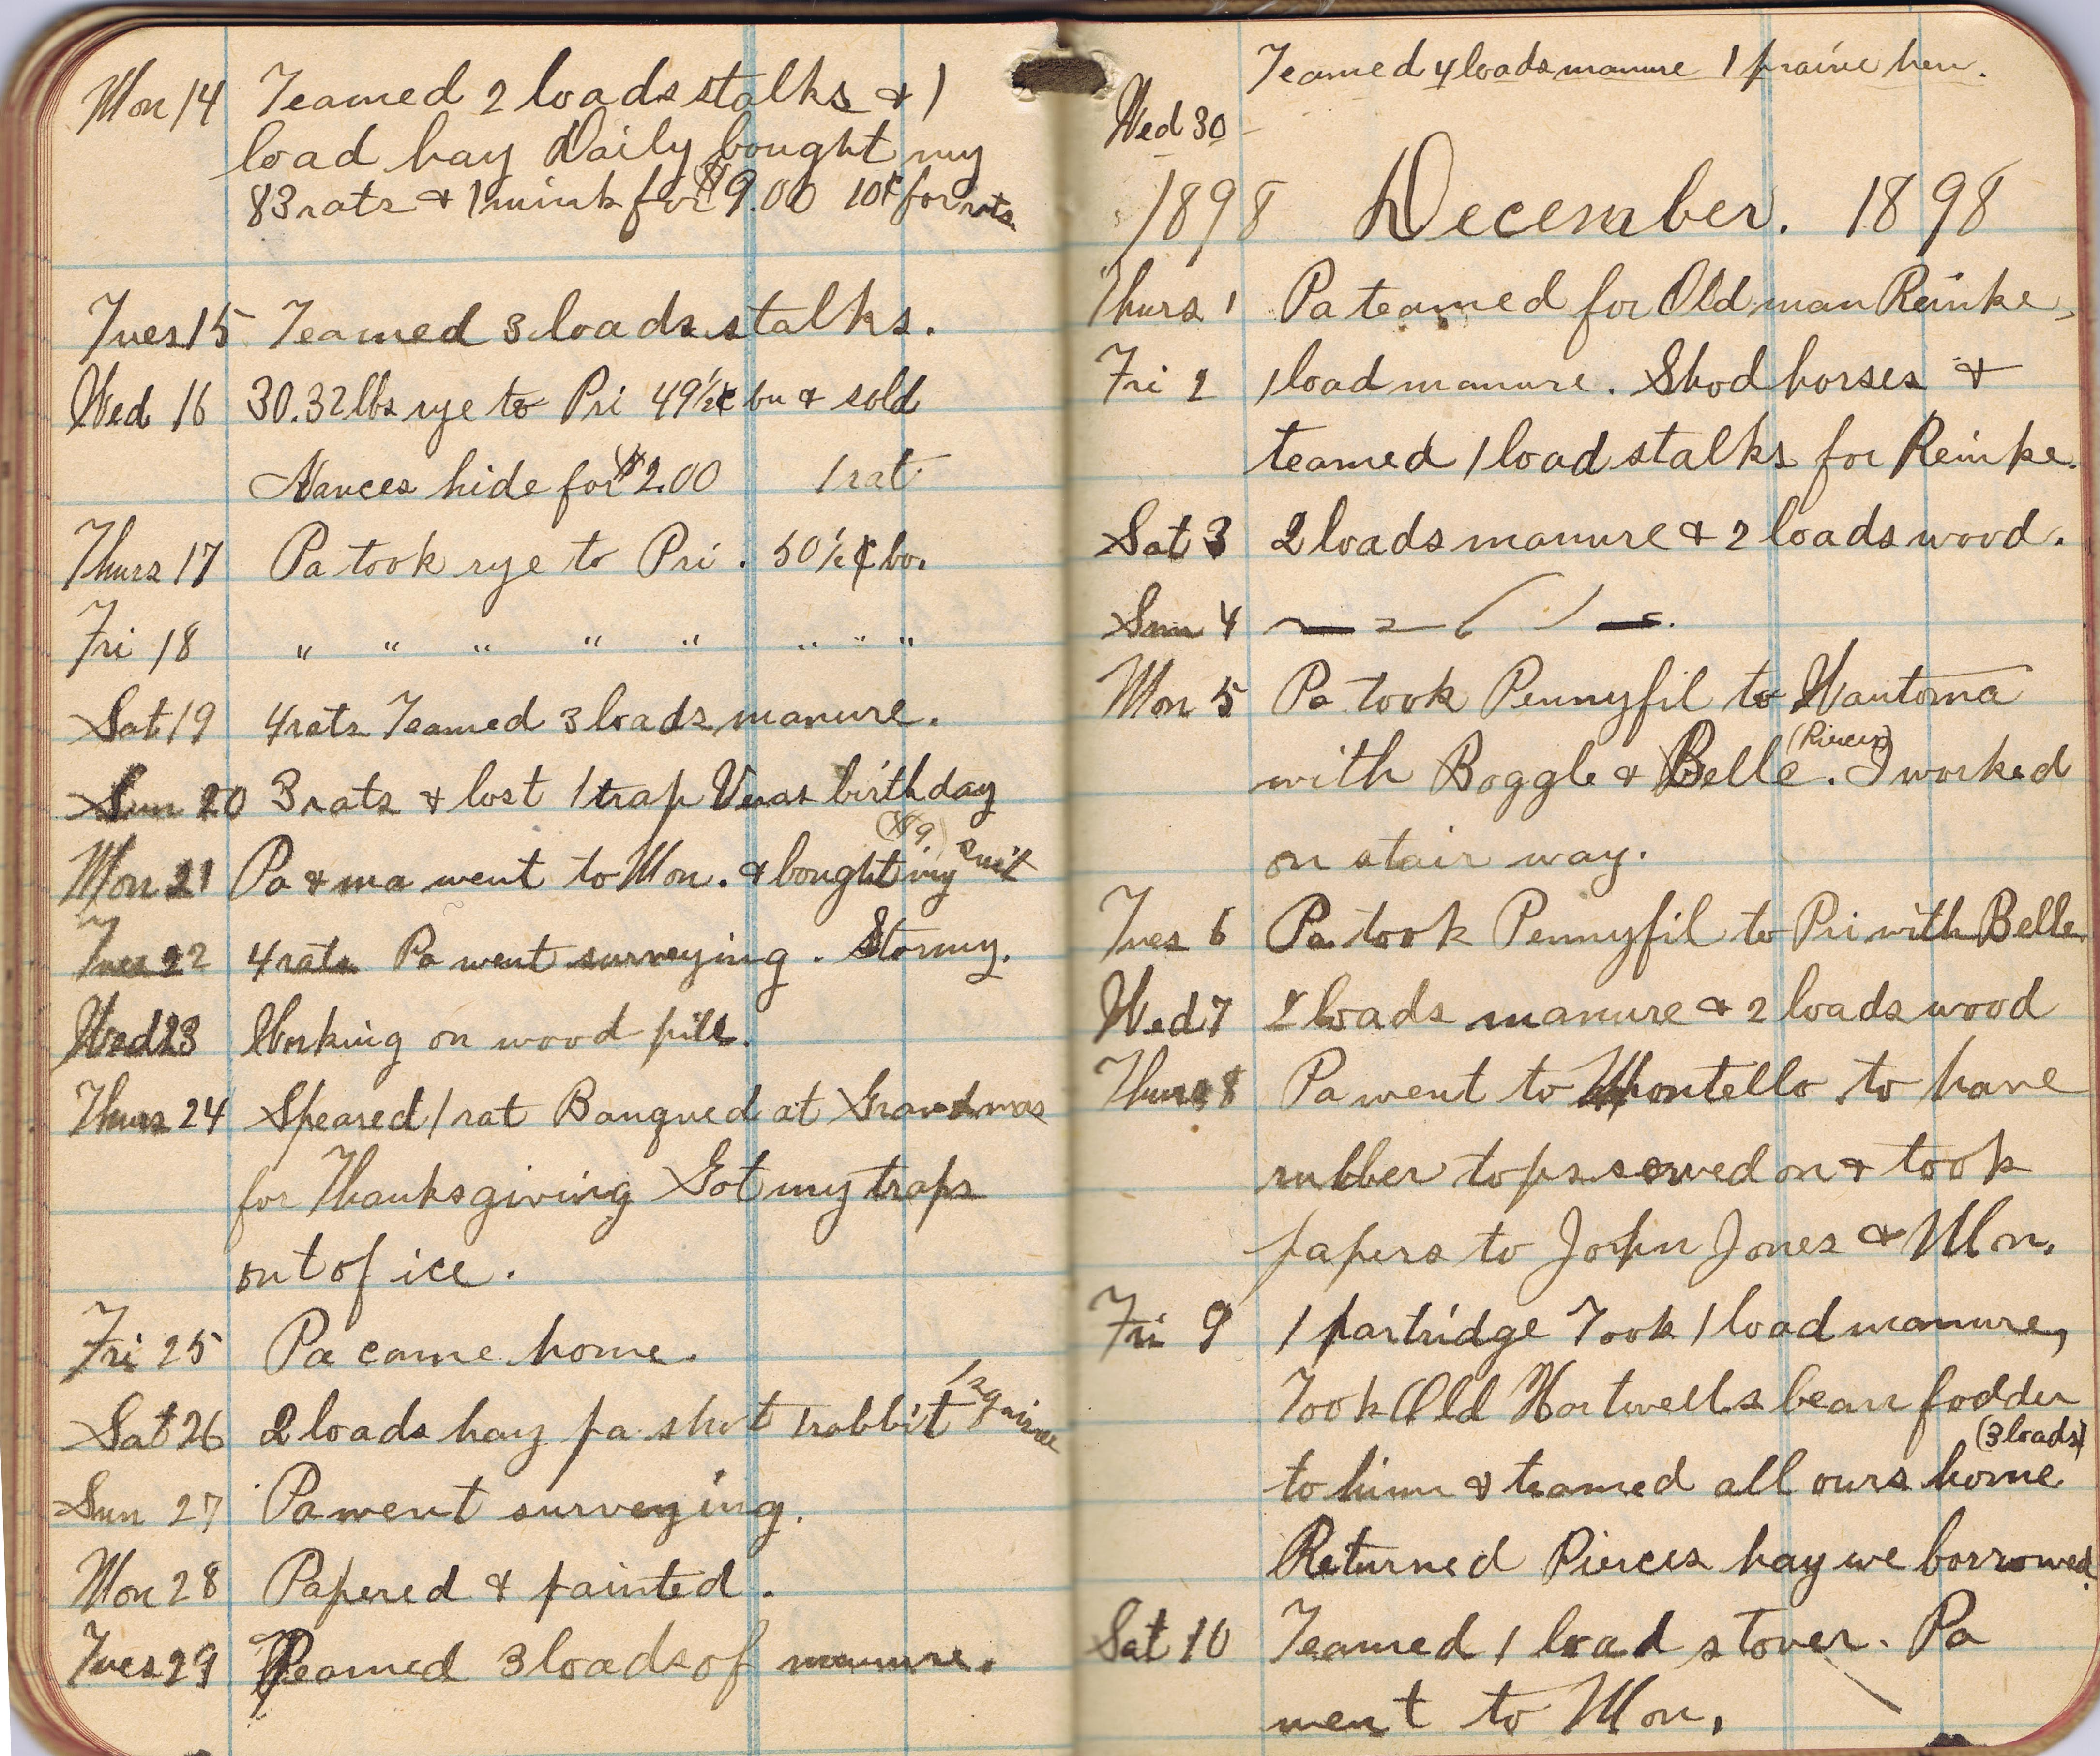 Mon 14 Teamed 2 loads stalks & 1
load hay Daily bought my
83 rats & 1 mink for $9.00 10¢ for rats.
Tues 15 Teamed 3 loads stalks.
Wed 16 30.32 lbs rye to Pri 49½¢ bu & sold
Nances hide for $2.00 1 rat
Thurs 17 Pa took rye to Pri. 50½¢ bu.
Fri 18 " " " " " " " "
Sat 19 4 rats Teamed 3 loads manure.
Sun 20 3 rats & lost 1 trap Veras birthday
($9)
Mon 21 Pa & ma went to Mon. & bought my suit
Tues 22 4 rats Pa went surveying. Stormy.
Wed 23 Working on wood pile.
Thurs 24 Speared 1 rat Banqued at Grandmas
for Thanksgiving Got my traps
out of ice.
Fri 25 Pa came home.
Sat 26 2 loads hay pa shot 1 rabbit 1 squirrel
Sun 27 Pa went surveying.
Mon 28 Papered & painted.
Tues 29 Teamed 3 loads of manure.
Teamed 4 loads manure 1 prairie hen.
Wed 30
1898 December. 1898
Thurs 1 Pa teamed for Old man Reinke,
Fri 2 1 load manure. Shod horses &
teamed 1 load stalks for Reinke.
Sat 3 2 loads manure & 2 loads wood.
Sun 4
Mon 5 Pa took Pennyfil to Wautoma
(Pierces)
with Boggle & Belle. I worked
on stair way.
Tues 6 Pa took Pennyfil to Pri with Belle
Wed 7 2 loads manure & 2 loads wood
Thurs 8 Pa went to Montello to have
rubber tops sewed on & took
papers to John Jones & Mon.
Fri 9 1 partridge Took 1 load manure,
Took Old Hartwells bean fodder
(3 loads)
to him & teamed all ours home
Returned Pierces hay we borrowed.
Sat 10 Teamed 1 load stover. Pa
went to Mon.